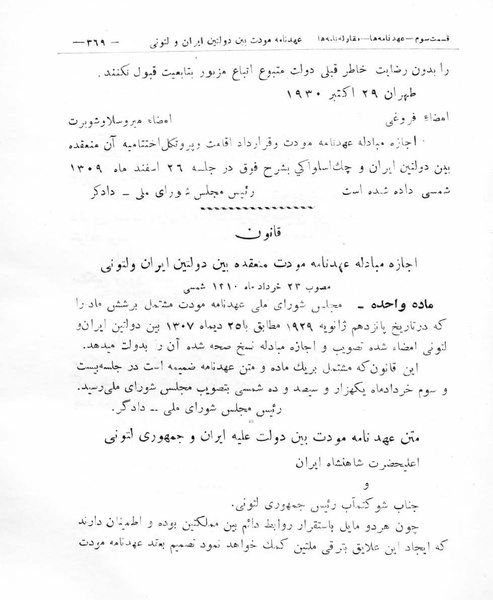 قسمت سوم – عهدنامه‌ها – مقاوله‌نامه‌ها عهدنامه مودت بین دولتین ایران و لتونی – ۳۶۹ –
را بدون رضایت خاطر قبلی دولت متبوع اتباع مزبور بتابعیت قبول نکنند.
طهران ۲۹ اکتبر ۱۹۳۰
امضاء فروغی امضاء میروسلاوشوبرت
اجازه مبادله عهدنامه مودت و قرارداد اقامت و پروتکل اختتامیه آن منعقده
بین دولتین ایران و چک‌اسلواکی بشرح فوق در جلسه ۲۶ اسفند ماه ۱۳۰۹
شمسی داده شده است رئیس مجلس شورای ملی – دادگر
قانون
اجازه مبادله عهدنامه مودت منعقده بین دولتین ایران ولتونی
مصوب ۲۳ خرداد ماه ۱۳۱۰ شمسی
ماده واحده – مجلس شورای ملی عهدنامه مودت مشتمل برشش ماده را
که درتاریخ پانزدهم ژانویه ۱۹۲۹ مطابق با ۲۵ دیماه ۱۳۰۷ بین دولتین ایران و
لتونی امضاء شده تصویب و اجازه مبادله نسخ صحه شده آن را بدولت میدهد.
این قانون که مشتمل بریک ماده و متن عهدنامه ضمیمه است در جلسه بیست
و سوم خردادماه یکهزار و سیصد و ده شمسی بتصویب مجلس شورای ملی رسید.
رئیس مجلس شورای ملی – دادگر.
متن عهد نامه مودت بین دولت علیه ایران و جمهوری لتونی
اعلیحضرت شاهنشاه ایران
و
جناب شوکتمآب رئیس جمهوری لتونی.
چون هردو مایل باستقرار روابط دائم بین مملکتین بوده و اطمینان دارند
که ایجاد این علایق بترقی ملتین کمک خواهد نمود تصمیم بعقد عهدنامه مودت